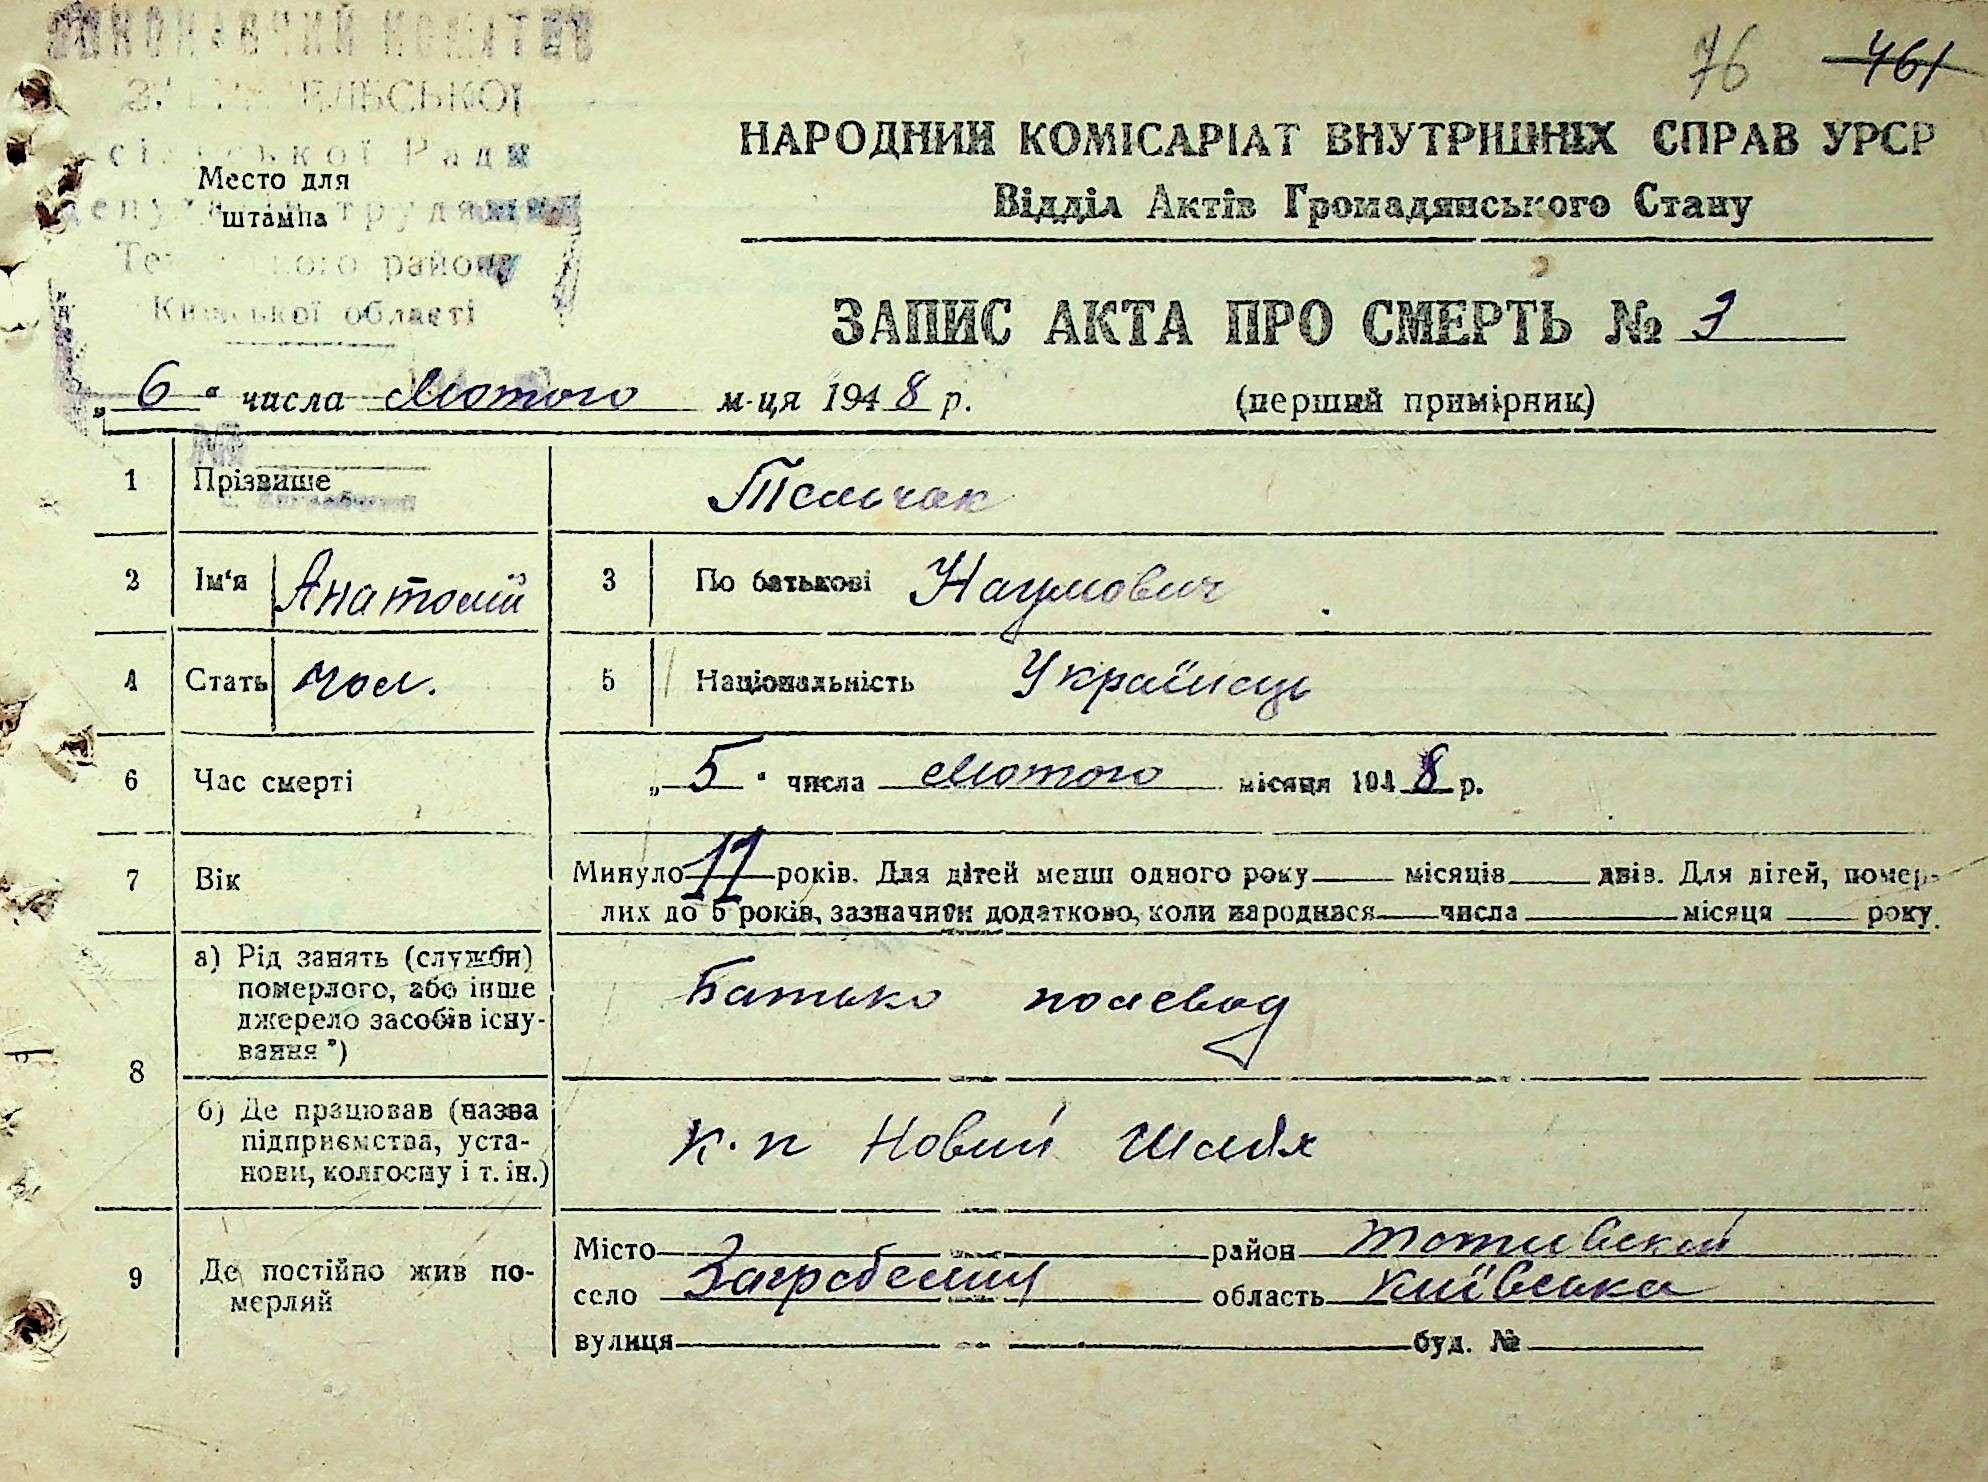 76 461
НАРОДНИЙ КОМІСАРІАТ ВНУТРІШНІХ СПРАВ УРСР
Відділ Актів Громадянського Стану
сільської Ради
Место для
штампа
району
Київської області
ЗАПИС АКТА ПРО СМЕРТЬ № 3
„6“ числа Лютого м-ця 1948 р. (перший примірник)
1 Прізвище Тельчак
2 Ім'я Анатолій 3 По батькові Наумович
4 Стать чол. 5 Національність Українець
6 Час смерті „5“ числа Лютого місяця 1948 р.
7 Вік Минуло років. Для дітей менш одного року місяців днів. Для дітей, помер-
лих до 5 років, зазначити додатково, коли народився числа місяця року.
8 а) Рід занять (служби)
померлого, або інше
джерело засобів існу-
вання *)
Батько полевод
б) Де працював (назва
підприємства, уста-
нови, колгоспу і т. ін.)
к-п Новий Шлях
9 Де постійно жив по-
мерлий
Місто район
село область Київська
вулиця буд. №